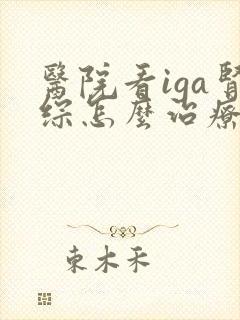 醫院看iga腎
綜怎麼治療
東木禾